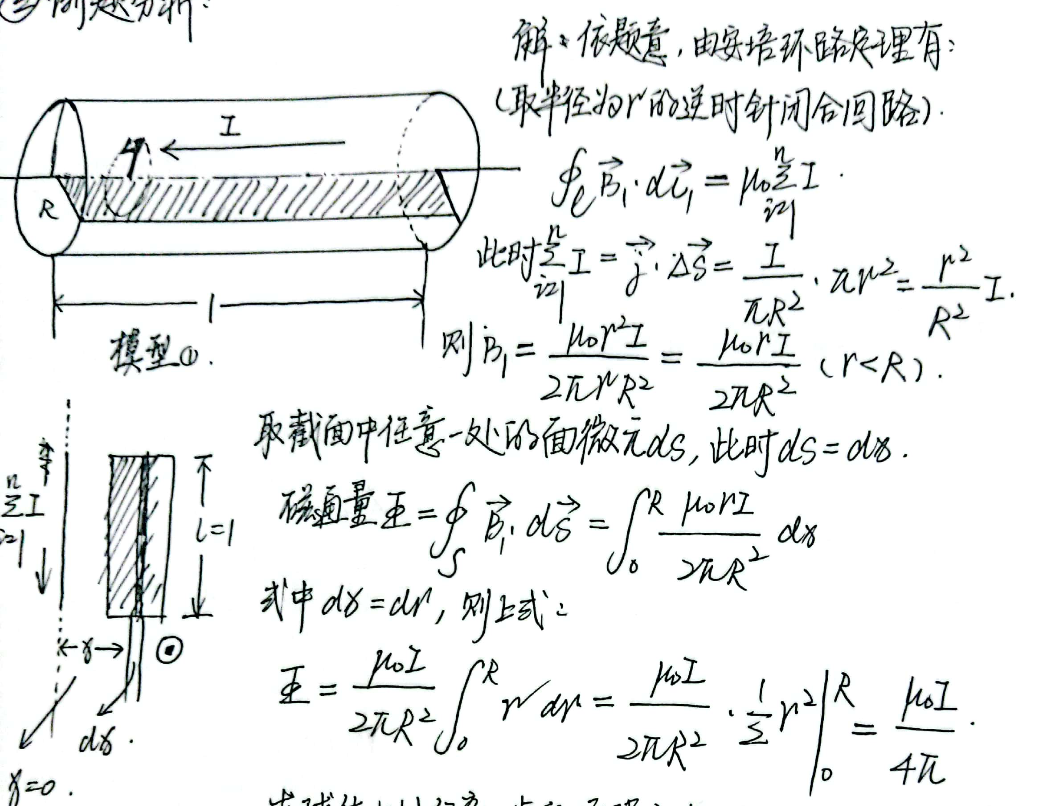 ②例题分析:
解:依题意,由安培环路定理有:
(取半径为r的逆时针闭合回路).
∮ₗ B⃗₁·dl⃗₁ = μ₀ Σⁿᵢ₌₁ I.
此时 Σⁿᵢ₌₁ I = j⃗·ΔS⃗ = I/(πR²)·πr² = r²/R² I.
则B₁ = μ₀r²I/(2πrR²) = μ₀rI/(2πR²) (r<R).
I
R
r
l
模型①.
取截面中任意一处的面微元ds,此时ds=dx.
磁通量Φ = ∮ₛ B⃗₁·ds⃗ = ∫₀ᴿ μ₀rI/(2πR²) dx
式中dx=dr,则上式:
Φ = μ₀I/(2πR²) ∫₀ᴿ r dr = μ₀I/(2πR²)·½r²|₀ᴿ = μ₀I/(4π).
Σⁿᵢ₌₁ I
l=1
x
dx.
x=0.